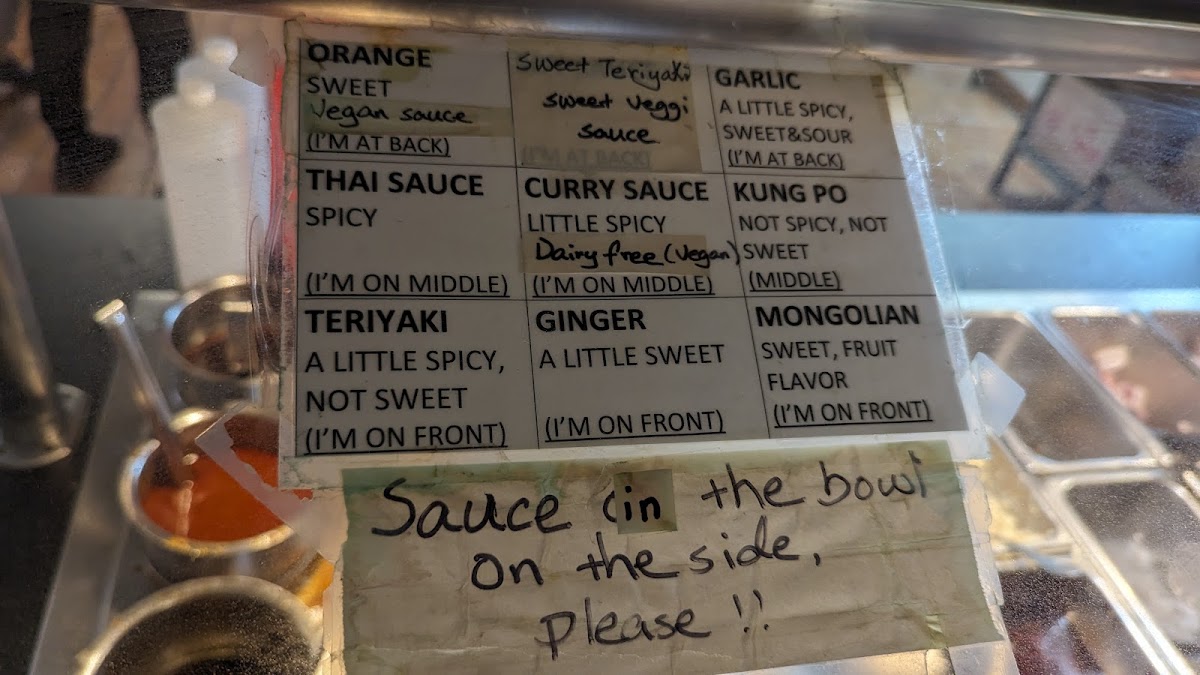 ORANGE
SWEET
Vegan sauce
(I'M AT BACK)
Sweet Teriyaki
sweet veggi
sauce
(I'M AT BACK)
GARLIC
A LITTLE SPICY,
SWEET&SOUR
(I'M AT BACK)
THAI SAUCE
SPICY
(I'M ON MIDDLE)
CURRY SAUCE
LITTLE SPICY
Dairy free (vegan)
(I'M ON MIDDLE)
KUNG PO
NOT SPICY, NOT
SWEET
(MIDDLE)
TERIYAKI
A LITTLE SPICY,
NOT SWEET
(I'M ON FRONT)
GINGER
A LITTLE SWEET
(I'M ON FRONT)
MONGOLIAN
SWEET, FRUIT
FLAVOR
(I'M ON FRONT)
Sauce (in the bowl
on the side,
please !!